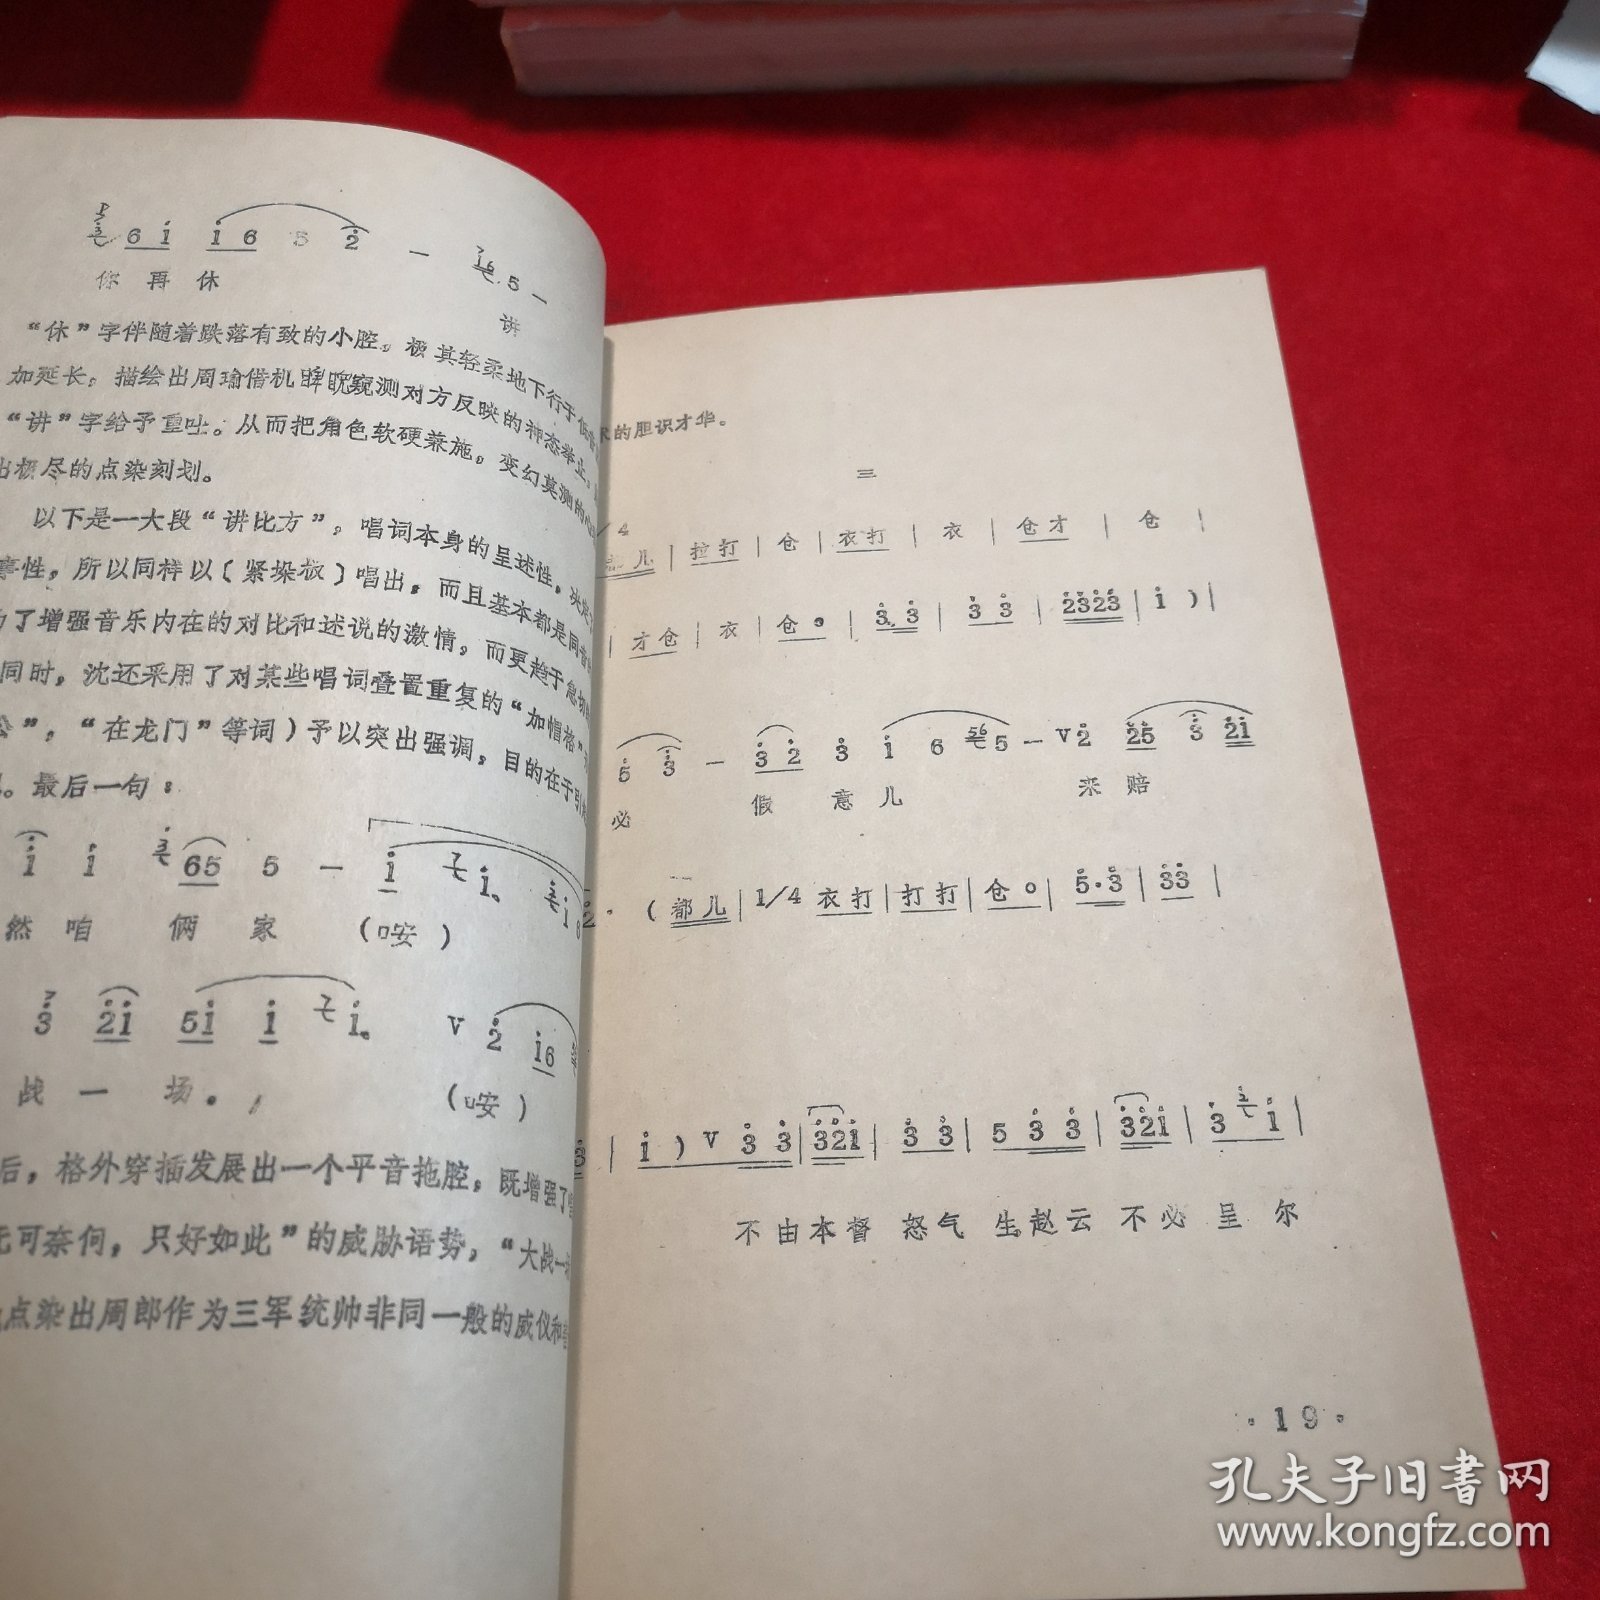 6 i i 6 5 2 — 5 —
你 再 休 讲
“休”字伴随着跌落有致的小腔，极其轻柔地下行于低音
加延长，描绘出周瑜借机睥睨窥测对方反映的神态举止，
“讲”字给予重吐。从而把角色软硬兼施，变幻莫测的
出极尽的点染刻划。
以下是一大段“讲比方”，唱词本身的呈述性，决定了
事性，所以同样以〔紧垛板〕唱出，而且基本都是同音
为了增强音乐内在的对比和述说的激情，而更趋于急切
同时，沈还采用了对某些唱词叠置重复的“加帽格”
公”，“在龙门”等词）予以突出强调，目的在于引
。最后一句：
i i 65 5 — i i。
然 咱 俩 家 （唉）
3 2i 5i i i。 V 2 i6
战 一 场。 （唉）
后，格外穿插发展出一个平音拖腔，既增强了
无可奈何，只好如此”的威胁语势，“大战一
点染出周郎作为三军统帅非同一般的威仪和
的胆识才华。
三
/4
儿 | 拉打 | 仓 | 衣打 | 衣 | 仓才 | 仓 |
| 才仓 | 衣 | 仓。 | 3.3 | 3 3 | 2323 | i ) |
5 3 — 3 2 3 i 6 56 5 — V 2 25 3 2i
必 假 意 儿 来 赔
2· （都儿 | 1/4 衣打 | 打打 | 仓0 | 5·3 | 33 |
3 | i ) V 3 3 | 32i | 3 3 | 5 3 3 | 32i | 3 i |
不由本督 怒气 生赵云 不必 呈 尔
·19·
孔夫子旧书网
www.kongfz.com